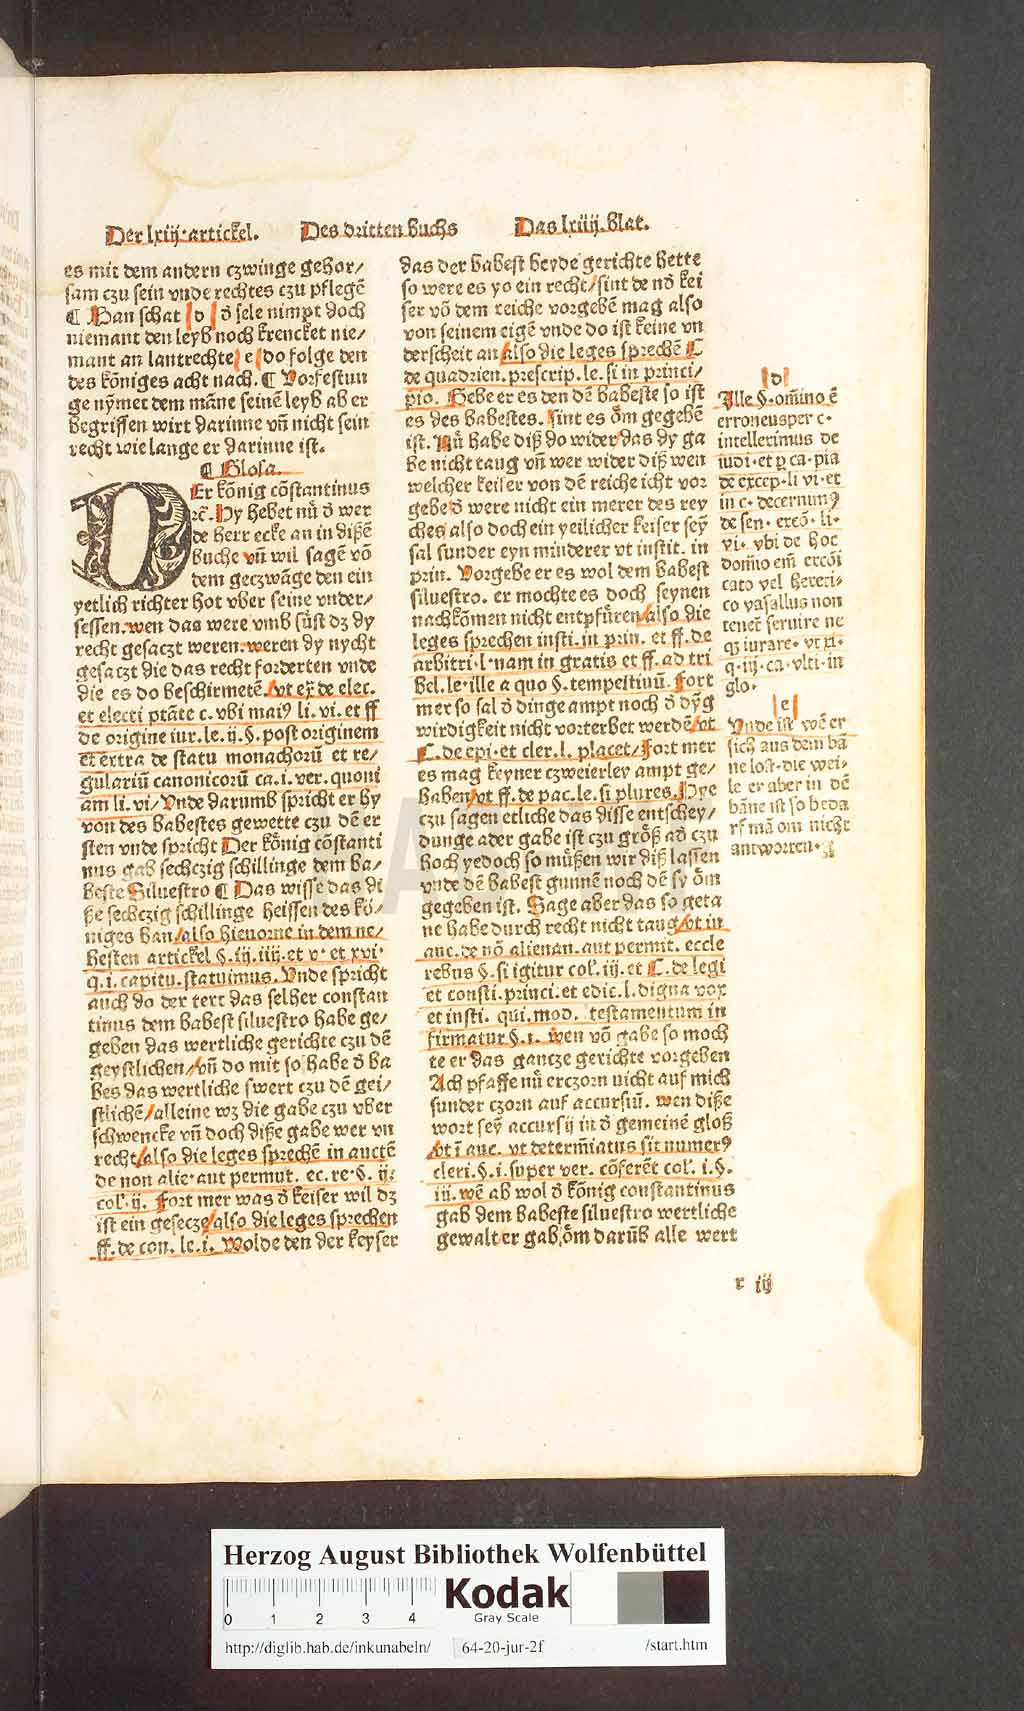 Der lxiij·artickel. Des dritten buchs Das lxiiij.blat.
es mit dem andern czwinge gehor/
sam czu sein vnde rechtes czu pflegē
¶ Ban schat d d̄ sele nimpt doch
niemant den leyb noch krencket nie/
mant an lantrechte e do folge den
des kőniges acht nach. ¶ Vorfestun
ge nȳmet dem māne seinē leyb ab er
begriffen wirt darinne vn̄ nicht sein
recht wie lange er darinne ist.
¶ Glosa.
DEr kőnig cōstantinus
rc̄. Hy hebet nů d̄ wer
de herr ecke an in dißē
buche vn̄ wil sagē vō
dem geczwāge den ein
yetlich richter hot vber seine vnder/
sessen.wen das were vmb sůst dz dy
recht gesaczt weren.weren dy nycht
gesaczt die das recht forderten vnde
die es do beschirmetē./vt ex̄ de elec.
et electi ptāte c. vbi maiꝰ li. vi. et ff
de origine iur.le.ij.§.post originem
et extra de statu monachorū et re/
gulariū canonicorū ca.i.ver.quoni
am li.vi/Vnde darumb spricht er hy
von des babestes gewette czu dē er
sten vnde spricht Der kőnig cōstanti
nus gab sechczig schillinge dem ba/
beste Siluestro ¶ Das wisse das di
ße sechczig schillinge heissen des kő/
niges ban/also hieuorne in dem ne/
hesten artickel §.iij.iiij.et v· et xvi·
q.i.capitu.statuimus.Vnde spricht
auch do der text das selber constan
tinus dem babest siluestro habe ge/
geben das wertliche gerichte czu dē
geystlichen/vn̄ do mit so habe d̄ ba
bes das wertliche swert czu dē gei/
stlichē/alleine wz die gabe czu vber
schwencke vn̄ doch diße gabe wer vn
recht/also die leges sprechē in auctē
de non alie·aut permut. ec.re·§. ij:
col'.ij. Fort mer was d̄ keiser wil dz
ist ein gesecze/also die leges sprechen
ff.de con. le.i. Wolde den der keyser
das der babest beyde gerichte hette
so were es yo ein recht/sint de nō kei
ser vō dem reiche vorgebē mag also
von seinem eigē vnde do ist keine vn
derscheit an/also die leges sprechē C
de quadrien.prescrip.le.si in princi/
pio. Gebe er es den dē babeste so ist
es des babestes. sint es őm gegebē
ist. Nů habe diß do wider/das dy ga
be nicht taug vn̄ wer wider diß wen
welcher keiser von dē reiche icht vor
gebe d̄ were nicht ein merer des rey
ches also doch ein yeilicher keiser seÿ
sal sunder eyn minderer vt instit. in
prin. Vorgebe er es wol dem babest
siluestro. er mochte es doch seynen
nachkōmen nicht entpfűren/also die
leges sprechen insti.in prin. et ff.de
arbitri·l·nam in gratis et ff.ad tri
bel.le·ille a quo §.tempestiuū. Fort
mer so sal d̄ dinge ampt noch d̄ dÿg
wirdigkeit nicht vorterbet werdē/vt
C.de epi·et cler.l. placet/Fort mer
es mag keyner czweierley ampt ge/
haben/vt ff.de pac.le.si plures.Hye
czu sagen etliche das disse entschey/
dunge ader gabe ist czu grőß ad̄ czu
hoch yedoch so műßen wir diß lassen
vnde dē babest gunnē noch dē sy őm
gegeben ist. Sage aber das so geta
ne habe durch recht nicht taug/vt in
auc.de nō alienan.aut permit. eccle
rebus §.si igitur col'.iij.et C.de legi
et consti.princi.et edic.l.digna vox
et insti. qui.mod. testamentum in
firmatur §.1. wen vō gabe so moch
te er das gantze gerichte vorgeben
Ach pfaffe nů erczorn nicht auf mich
sunder czorn auf accursiū. wen diße
wort seÿ accursij in d̄ gemeinē gloß
/vt ī auc. vt determ̄iatus sit numerꝰ
cleri.§.i.super ver. cōferēt col'. i.§.
iij.wē ab wol d̄ kőnig constantinus
gab dem babeste siluestro wertliche
gewalt er gab őm darūb alle wert
d
Ille §·om̄ino ē
erroneusper c·
intellerimus de
iudi·et ꝑ ca·pia
de excep·li vi·et
in c·decernimꝰ
de sen·excō·li·
vi· vbi de hoc
domīo em̄ excōi
cato vel hereti·
co vasallus non
tenet̄ seruire ne
qꝫ iurare· vt xi·
q·iij·ca·vlti·in
glo·
e
Vnde ist wē er
sich aus dem bā
ne lost·die wei·
le er aber in dē
bāne ist so beda
rf mā om nicht
antworten·
r iij
Herzog August Bibliothek Wolfenbüttel
0 1 2 3 4
Kodak
Gray Scale
http://diglib.hab.de/inkunabeln/ 64-20-jur-2f /start.htm